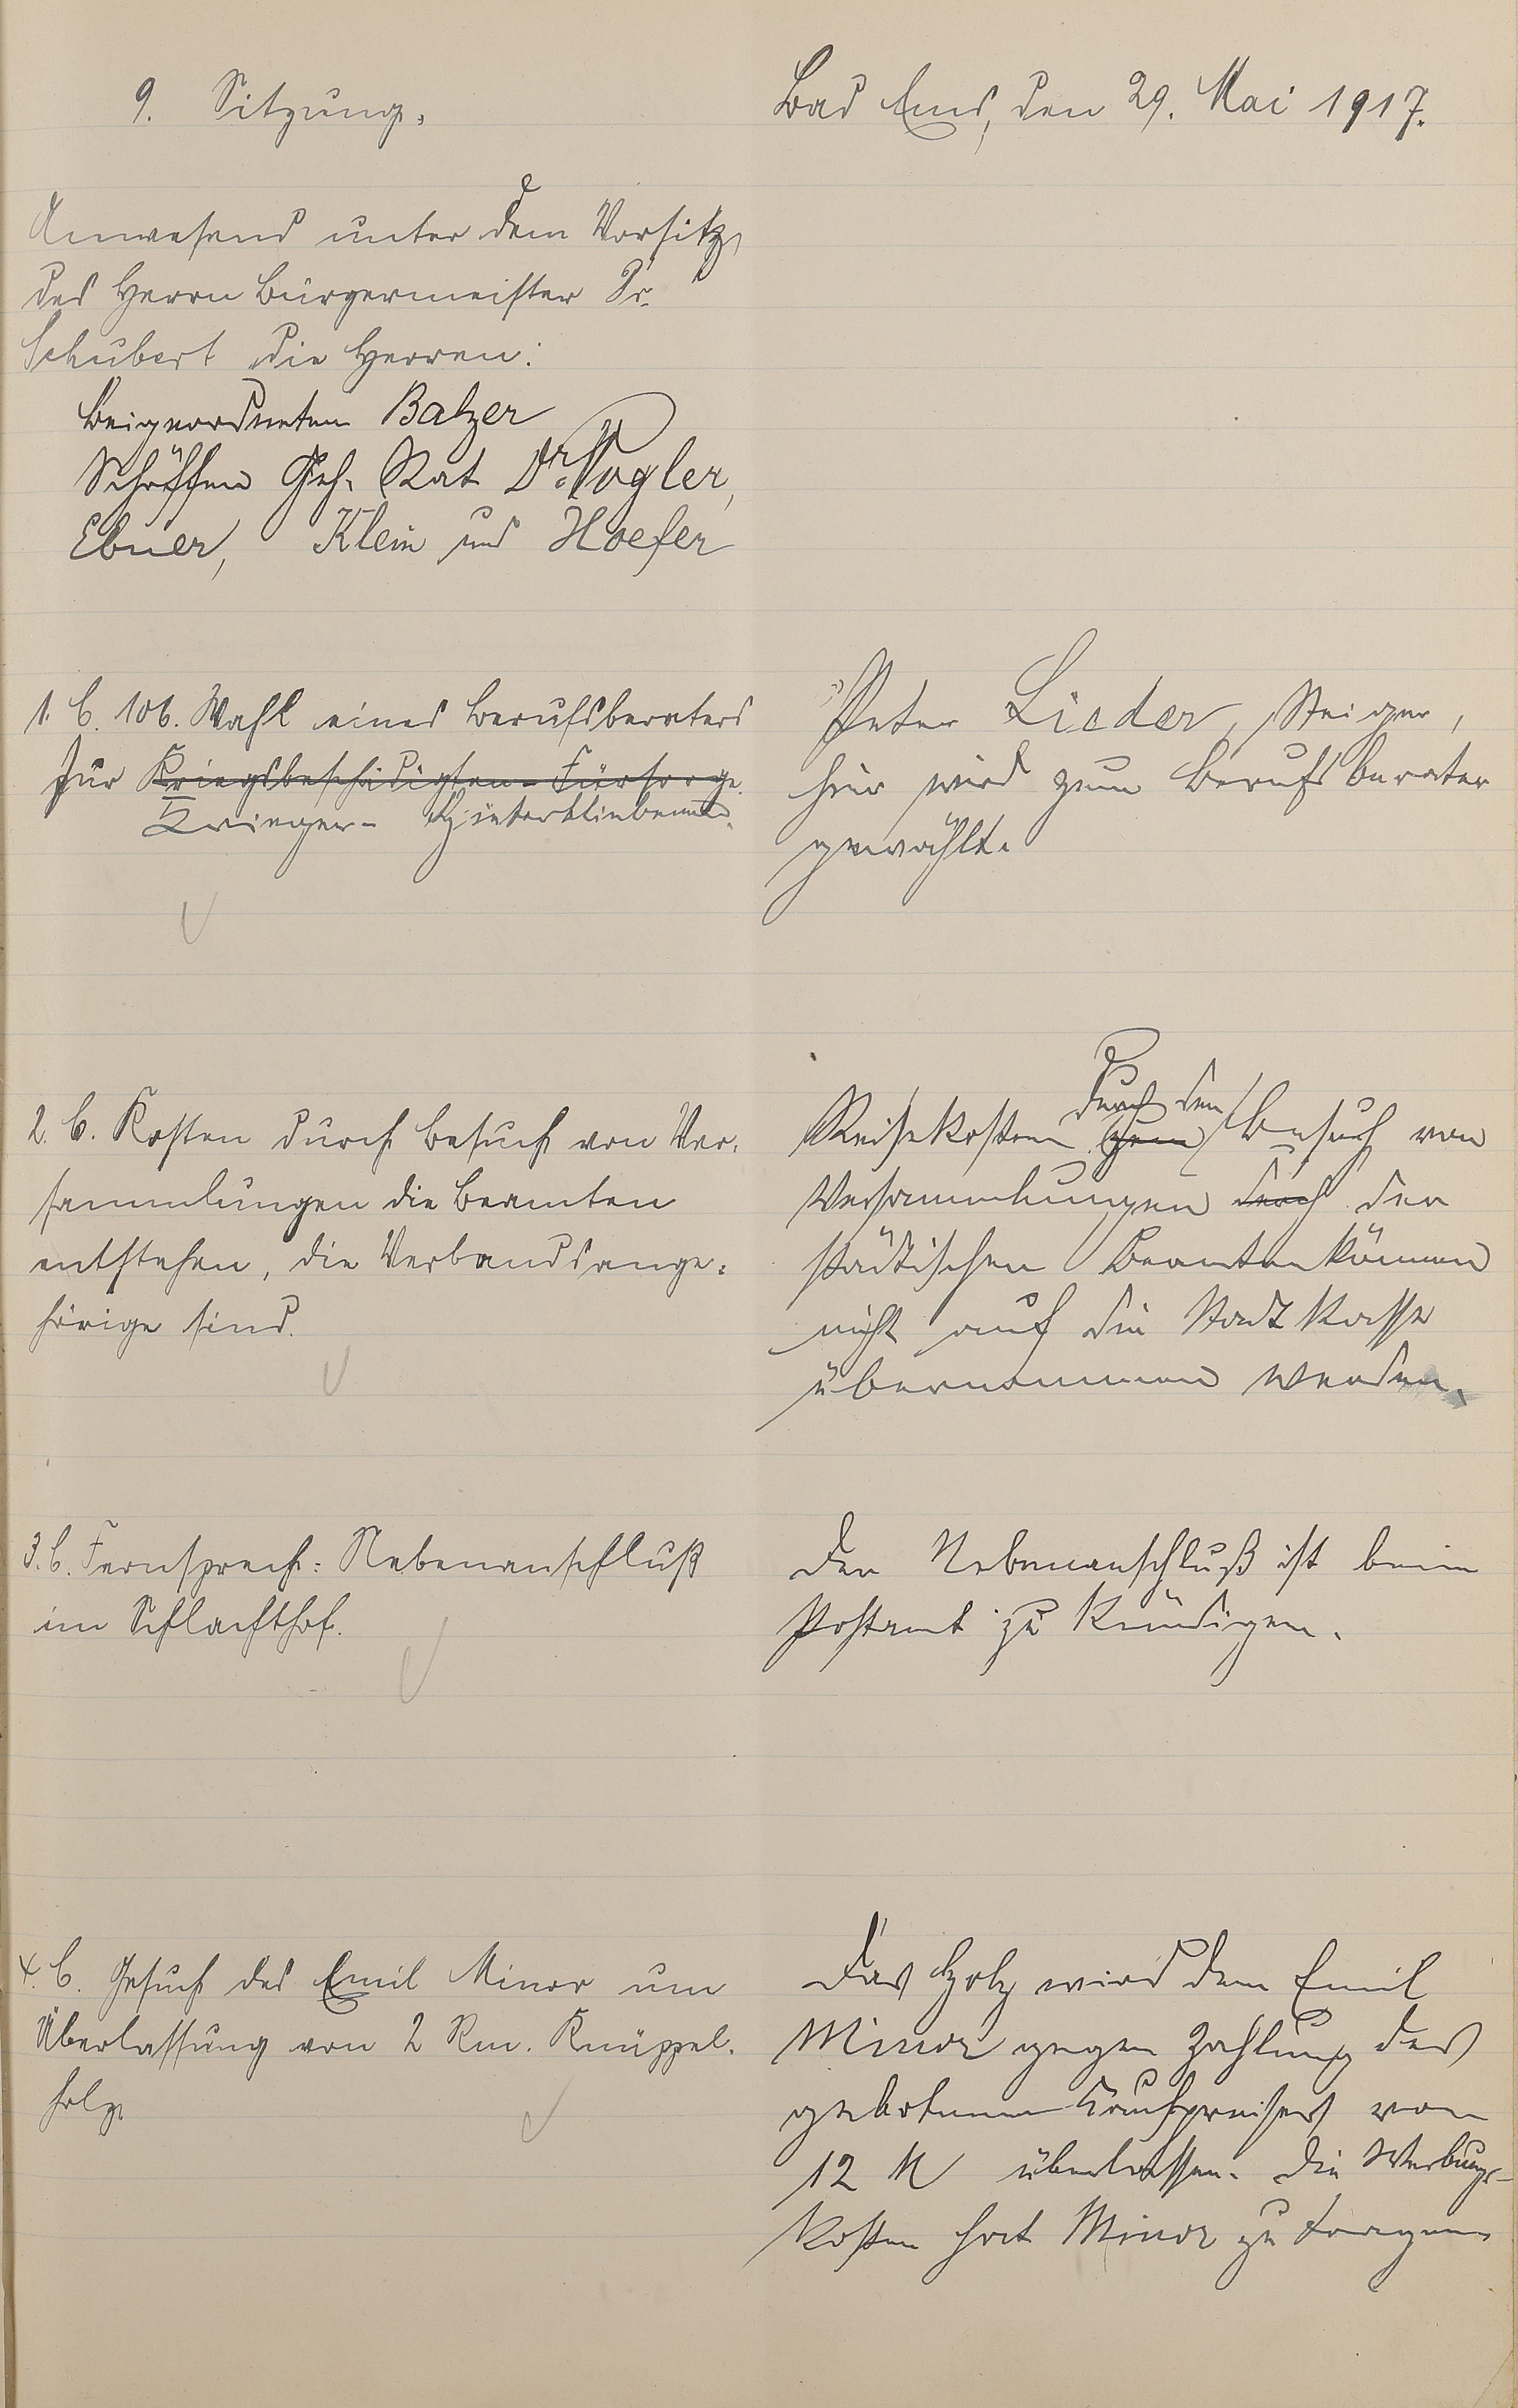 9. Sitzung.
Bad Ems, den 29. Mai 1917.
Anwesend unter dem Vorsitz
des Herrn Bürgermeister Dr.
Schubert die Herren:
Beigeordneten Balzer
Schöffen Geh. Rat Dr. Vogler,
Ebner, Klein und Hoefer
1. B. 106. Wahl eines Berufsberaters
für Kriegsbeschädigten-Fürsorge.
Krieger-Hinterbliebene.
Peter Lieder, Steiger,
hier wird zum Berufsberater
gewählt.
2. B. Kosten durch Besuch von Ver-
sammlungen die Beamten
entstehen, die Verbandsange-
hörige sind.
durch den
Reisekosten zum Besuch von
Versammlungen durch der
städtischen Beamten können
nicht auf die Stadtkasse
übernommen werden.
3. B. Fernsprech-Nebenanschluß
im Schlachthof.
Der Nebenanschluß ist beim
Postamt zu kündigen.
4. B. Gesuch des Emil Minor um
Überlassung von 2 Rm. Knüppel-
holz.
Das Holz wird dem Emil
Minor gegen Zahlung des
gebotenen Kaufpreises von
12 M überlassen. Die Werbungs-
kosten hat Minor zu tragen.